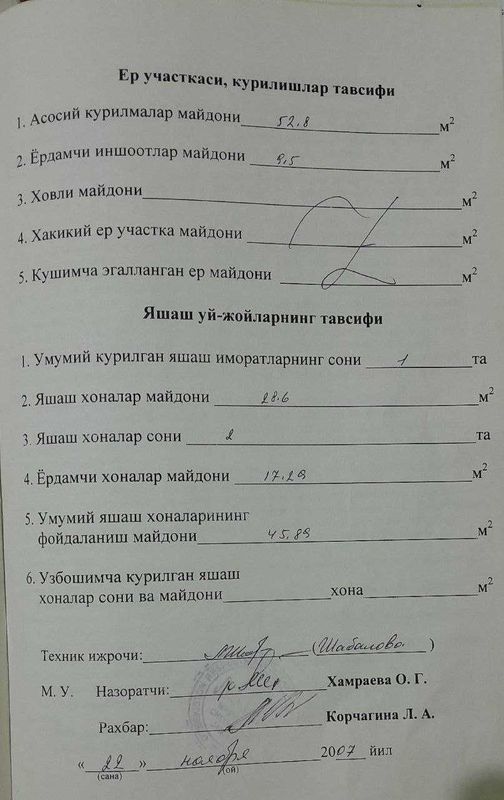 Ер участкаси, курилишлар тавсифи
1. Асосий курилмалар майдони 52,8 м²
2. Ёрдамчи иншоотлар майдони 9,5 м²
3. Ховли майдони м²
4. Хакикий ер участка майдони м²
5. Кушимча эгалланган ер майдони м²
Яшаш уй-жойларнинг тавсифи
1. Умумий курилган яшаш иморатларнинг сони 1 та
2. Яшаш хоналар майдони 28.6 м²
3. Яшаш хоналар сони 2 та
4. Ёрдамчи хоналар майдони 17.29 м²
5. Умумий яшаш хоналарининг
фойдаланиш майдони 45.89 м²
6. Узбошимча курилган яшаш
хоналар сони ва майдони хона м²
Техник ижрочи: (Шабалова)
М. У. Назоратчи: Хамраева О. Г.
Рахбар: Корчагина Л. А.
« 22 » ноября 2007 йил
(сана) (ой)